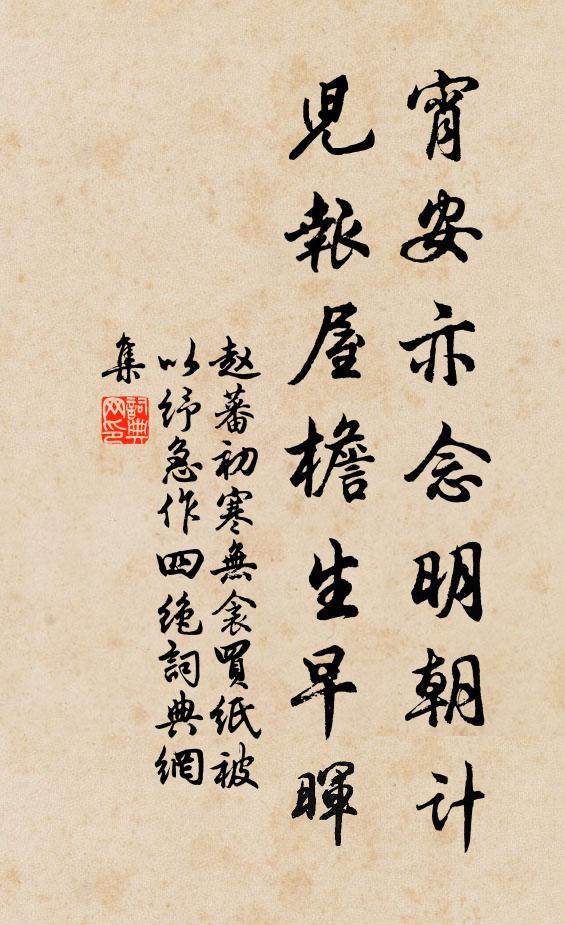 宵安亦念明朝計
兒報屋檐生早暉
趙蕃初寒無衾買紙被
以紓急作四絶詞典網
集
詞典網印